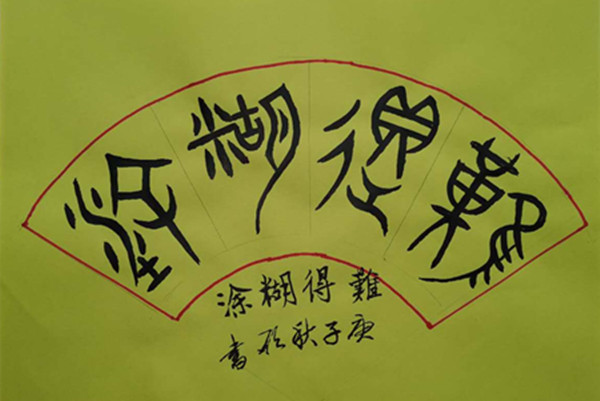 難得糊涂
難得糊涂
庚子秋於書